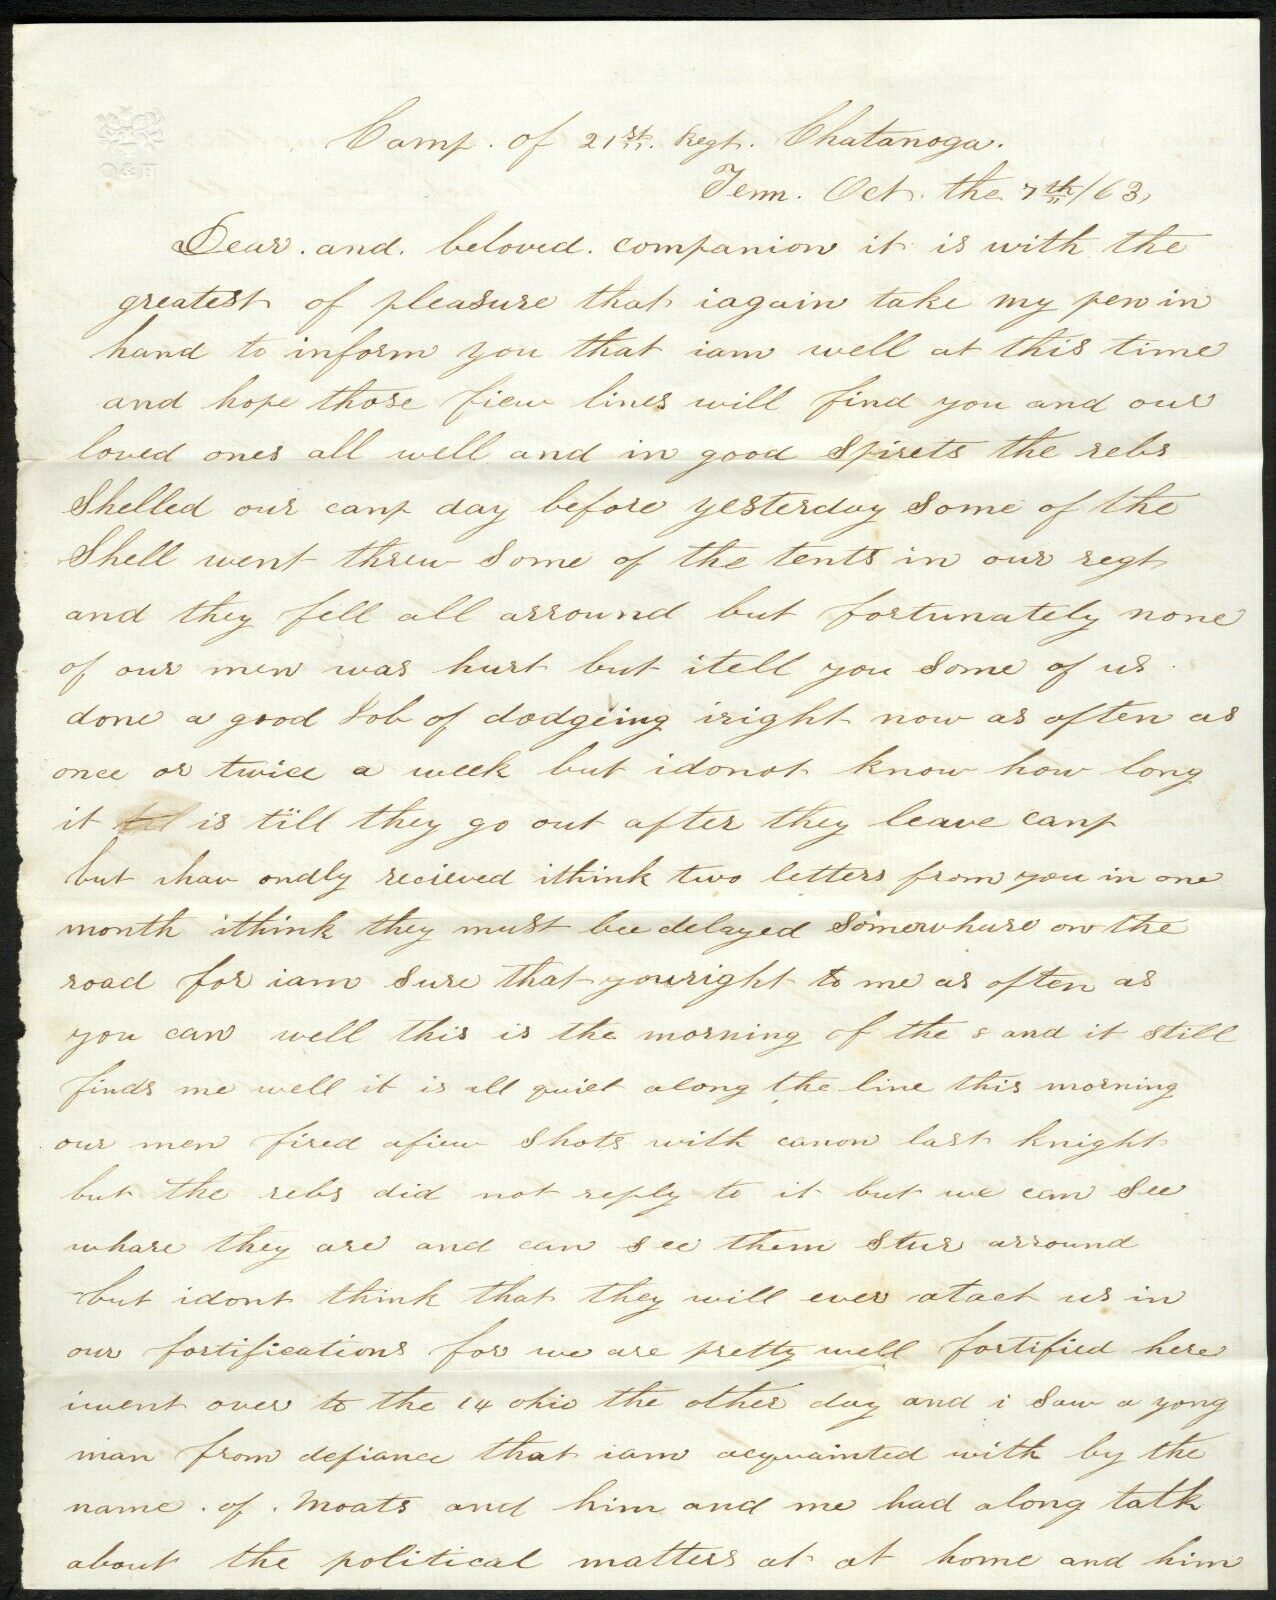 Camp. of 21st. Regt. Chatanoga.
Tenn. Oct. the 7th/63,
Dear. and. beloved. companion it is with the
greatest of pleasure that iagain take my pen in
hand to inform you that iam well at this time
and hope those fiew lines will find you and our
loved ones all well and in good Spirets the rebs
Shelled our canp day before yesterday Some of the
Shell went threw Some of the tents in our regt
and they fell all arround but fortunately none
of our men was hurt but itell you Some of us
done a good Job of dodgeing iright now as often as
once or twice a week but idonot know how long
it is till they go out after they leave canp
but ihav ondly recieved ithink two letters from you in one
month ithink they must bee delayed Somewhare on the
road for iam Sure that youright to me as often as
you can well this is the morning of the 8 and it still
finds me well it is all quiet along the line this morning
our men fired afiew Shots with canon last knight
but the rebs did not reply to it but we can See
whare they are and can see them Stur arround
but idont think that they will ever atact us in
our fortifications for we are pretty well fortified here
iwent over to the 14 ohio the other day and i Saw a yong
man from defiance that iam acquainted with by the
name. of. Moats and him and me had along talk
about the political matters at at home and him